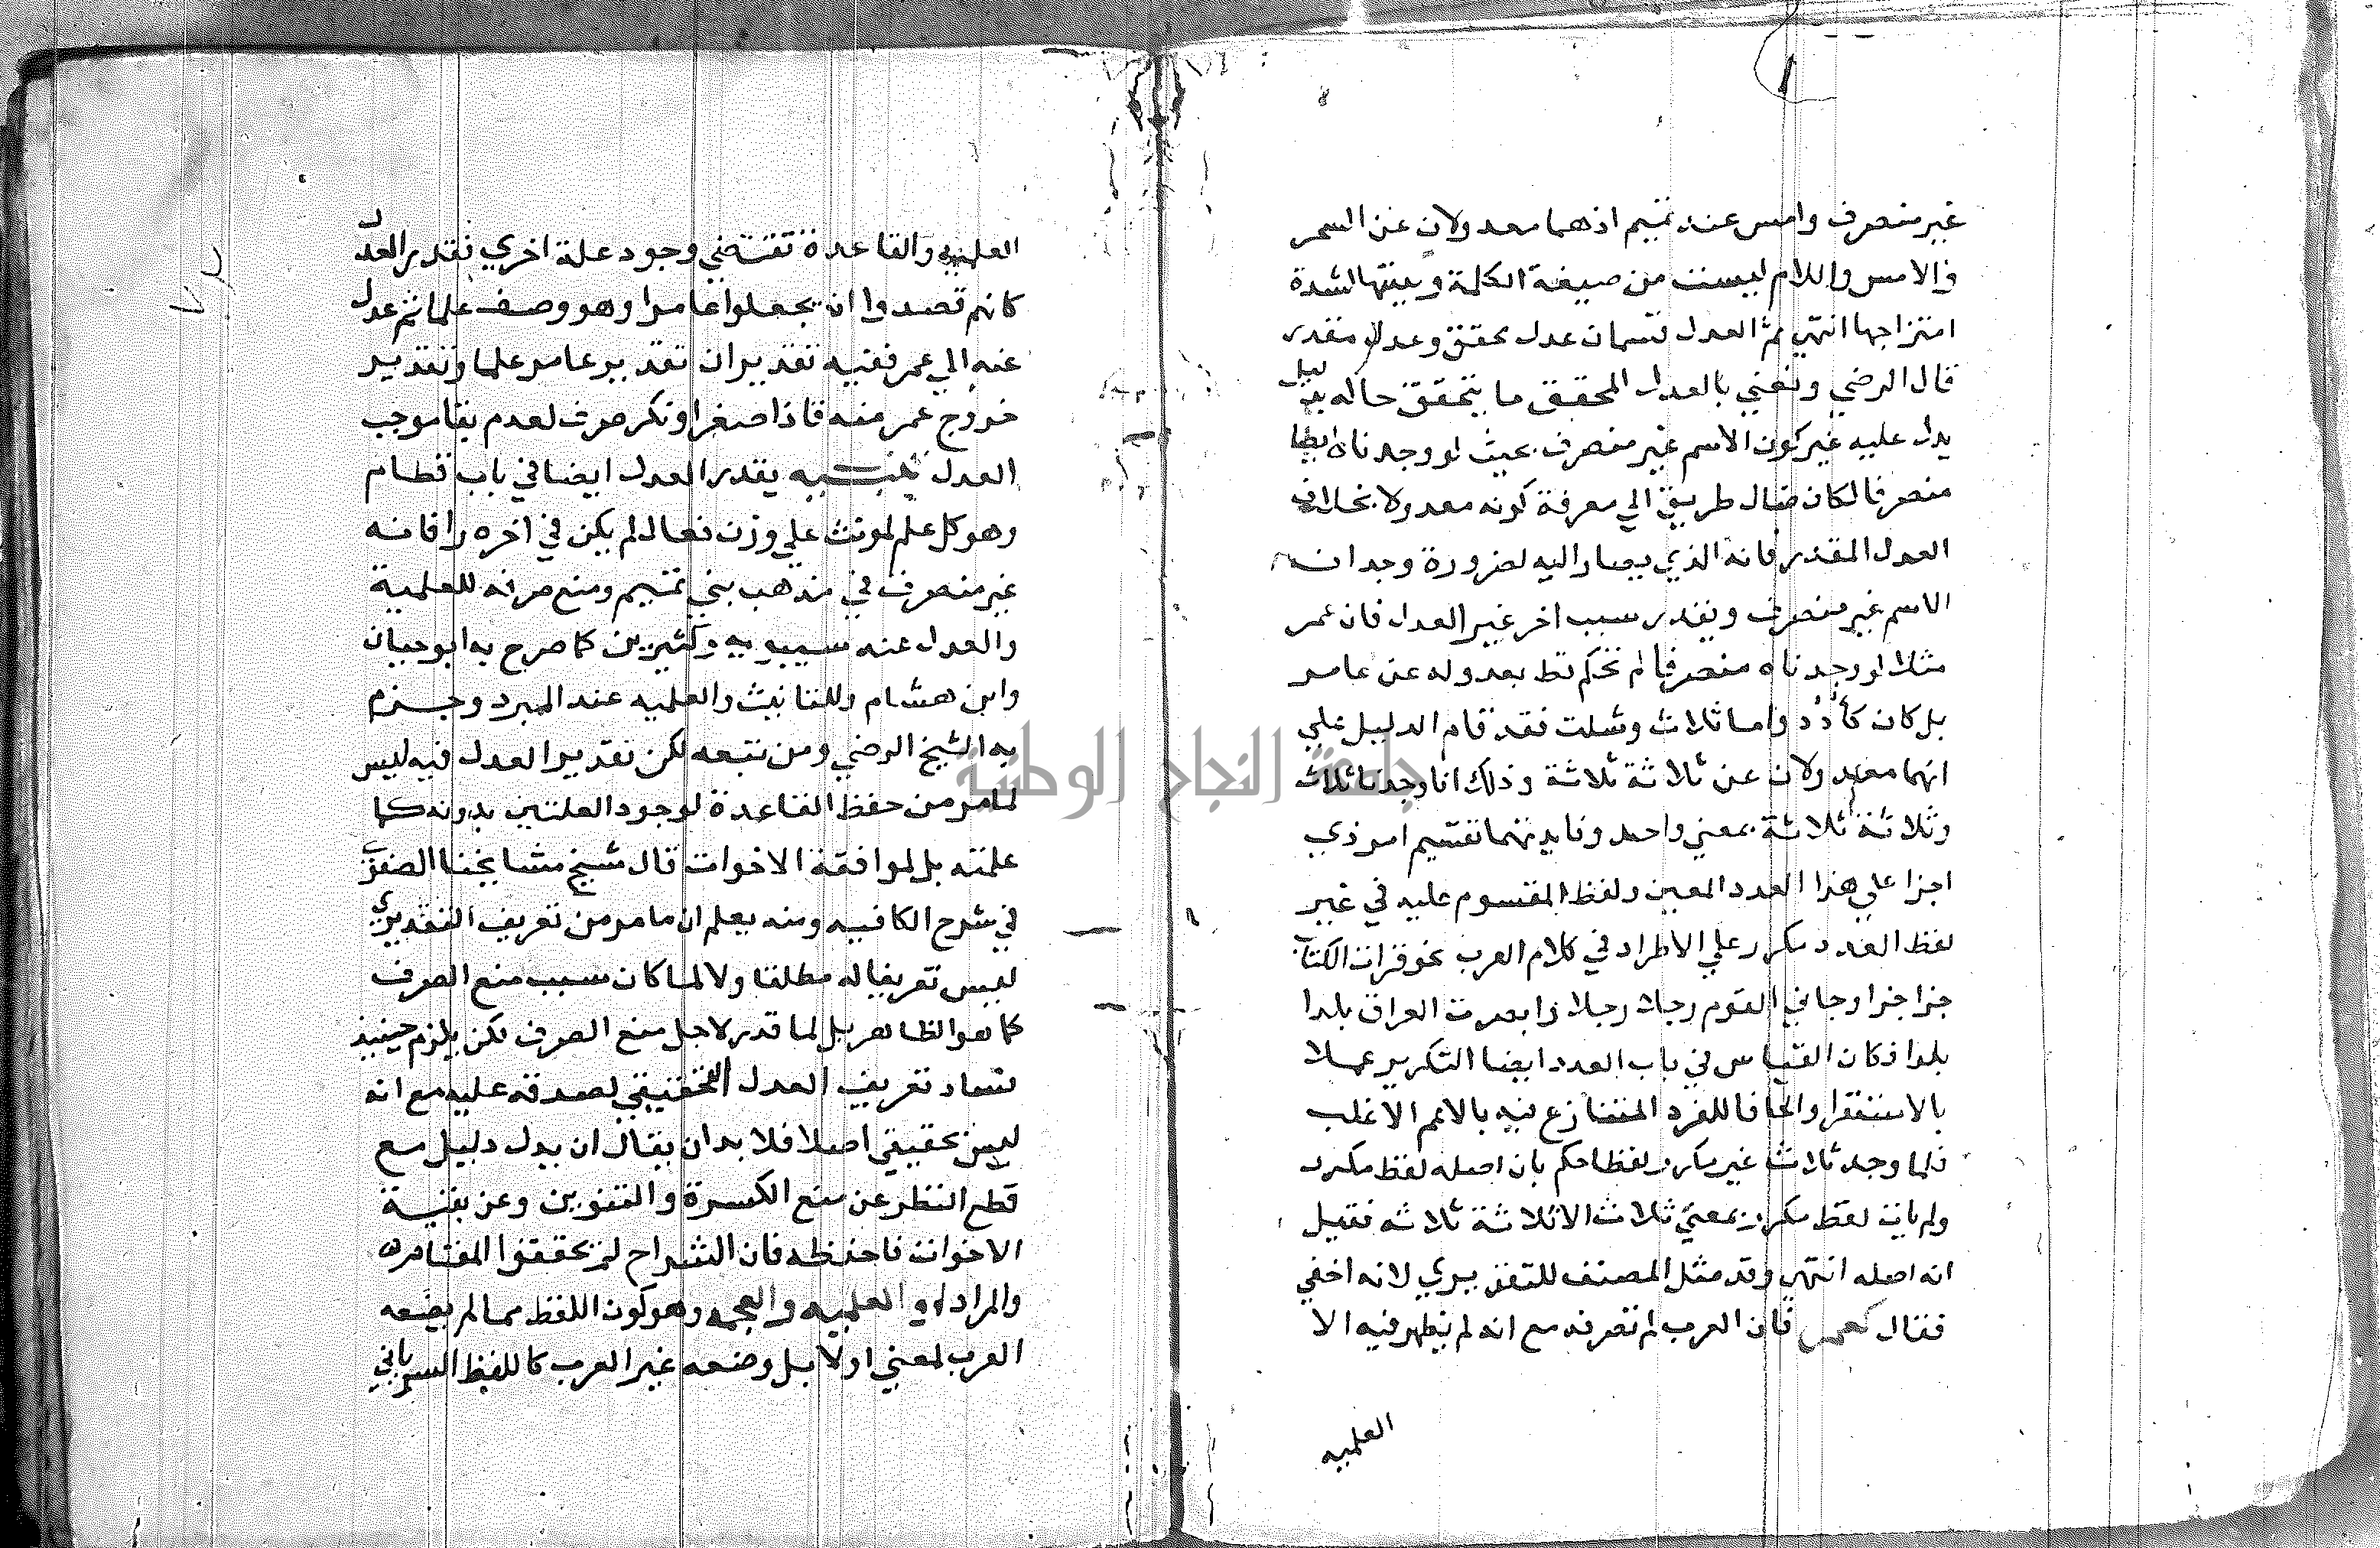 غير منصرف وامس عند تميم اذهما معدولان عن السحر
والامس واللام ليست من صيغة الكلمة وبينتها لشدة
امتزاجها انتهى ثم العدل قسمان عدل محقق وعدل مقدر
قال الرضي ونعني بالعدل المحقق ما يتحقق حاله بدليل
يدل عليه غير كون الاسم غير منصرف بحيث لو وجدناه ايضا
منصرفا لكان ضال طريق الي معرفة كونه معدولا بخلاف
العدل المقدر فانه الذي يصار اليه لضرورة وجدان
الاسم غير منصرف وتقدر سبب اخر غير العدل فان عمر
مثلا لو وجدناه منصرفا لم نحكم قط بعدوله عن عامر
بل كان كأدد واما ثلاث ومثلث فقد قام الدليل علي
انهما معدولان عن ثلاثة ثلاثة وذلك انا وجدنا ثلاث
وثلاثة ثلاثة بمعني واحد وفايدتهما تقسيم امر ذي
اجزا علي هذا العدد المعين ولفظ المقسوم عليه في غير
لفظ العدد مكرر علي الاطراد في كلام العرب نحو قرات الكتاب
جزا جزا وجاني القوم رجلا رجلا وابصرت العراق بلدا
بلدا فكان القياس في باب العدد ايضا التكرير عملا
بالاستقرا والحاقا للفرد المتنازع فيه بالاعم الاغلب
فلما وجد ثلاث غير مكرر لفظا حكم بان اصله لفظ مكرر
ولم يات لفظ مكرر بمعني ثلاث الا ثلاثة ثلاثه فقيل
انه اصله انتهى وقد مثل المصنف للتقديري لانه اخفي
فقال كعمر فان العرب لم تصرفه مع انه لم يظهر فيه الا
العلميه
العلميه والقاعدة تقتضي وجود علة اخري فقدر العدل
كانهم قصدوا ان يجعلوا عامرا وهو وصف علما ثم عدل
عنه الي عمر ففيه تقديران تقدير عامر علما وتقدير
خروج عمر منه فاذا صغر او نكر صرف لعدم بقا موجب
العدل تنبيه يقدر العدل ايضا في باب قطام
وهو كل علم لمونث علي وزن فعال لم يكن في اخره را فانه
غير منصرف في مذهب بني تميم ومنع صرفه للعلمية
والعدل عند سيبويه وكثيرين كما صرح به ابو حيان
وابن هشام وللتانيث والعلميه عند المبرد وجزم
به الشيخ الرضي ومن تتبعه لكن تقدير العدل فيه ليس
لما مر من حفظ القاعدة لوجود العلتين بدونه كما
علمته بل لموافقة الاخوات قال شيخ مشايخنا الصفوي
في شرح الكافيه ومنه يعلم ان ما مر من تعريف التقديري
ليس تعريفا له مطلقا ولا لما كان سبب منع الصرف
كما هو الظاهر بل لما قدر لاجل منع الصرف لكن يلزم حينيذ
فساد تعريف العدل التحقيقي لصدقه عليه مع انه
ليس تحقيقي اصلا فلا بد ان يقال ان يدل دليل مع
قطع النظر عن منع الكسرة والتنوين وعن بقية
الاخوات فاحفظه فان الشراح لم يحققوا المقام
والمراد العلميه والعجمه وهو كون اللفظ مما لم يضعه
العرب لمعني اولا بل وضعه غير العرب كاللفظ السرياني
جامعة النجاح الوطنية